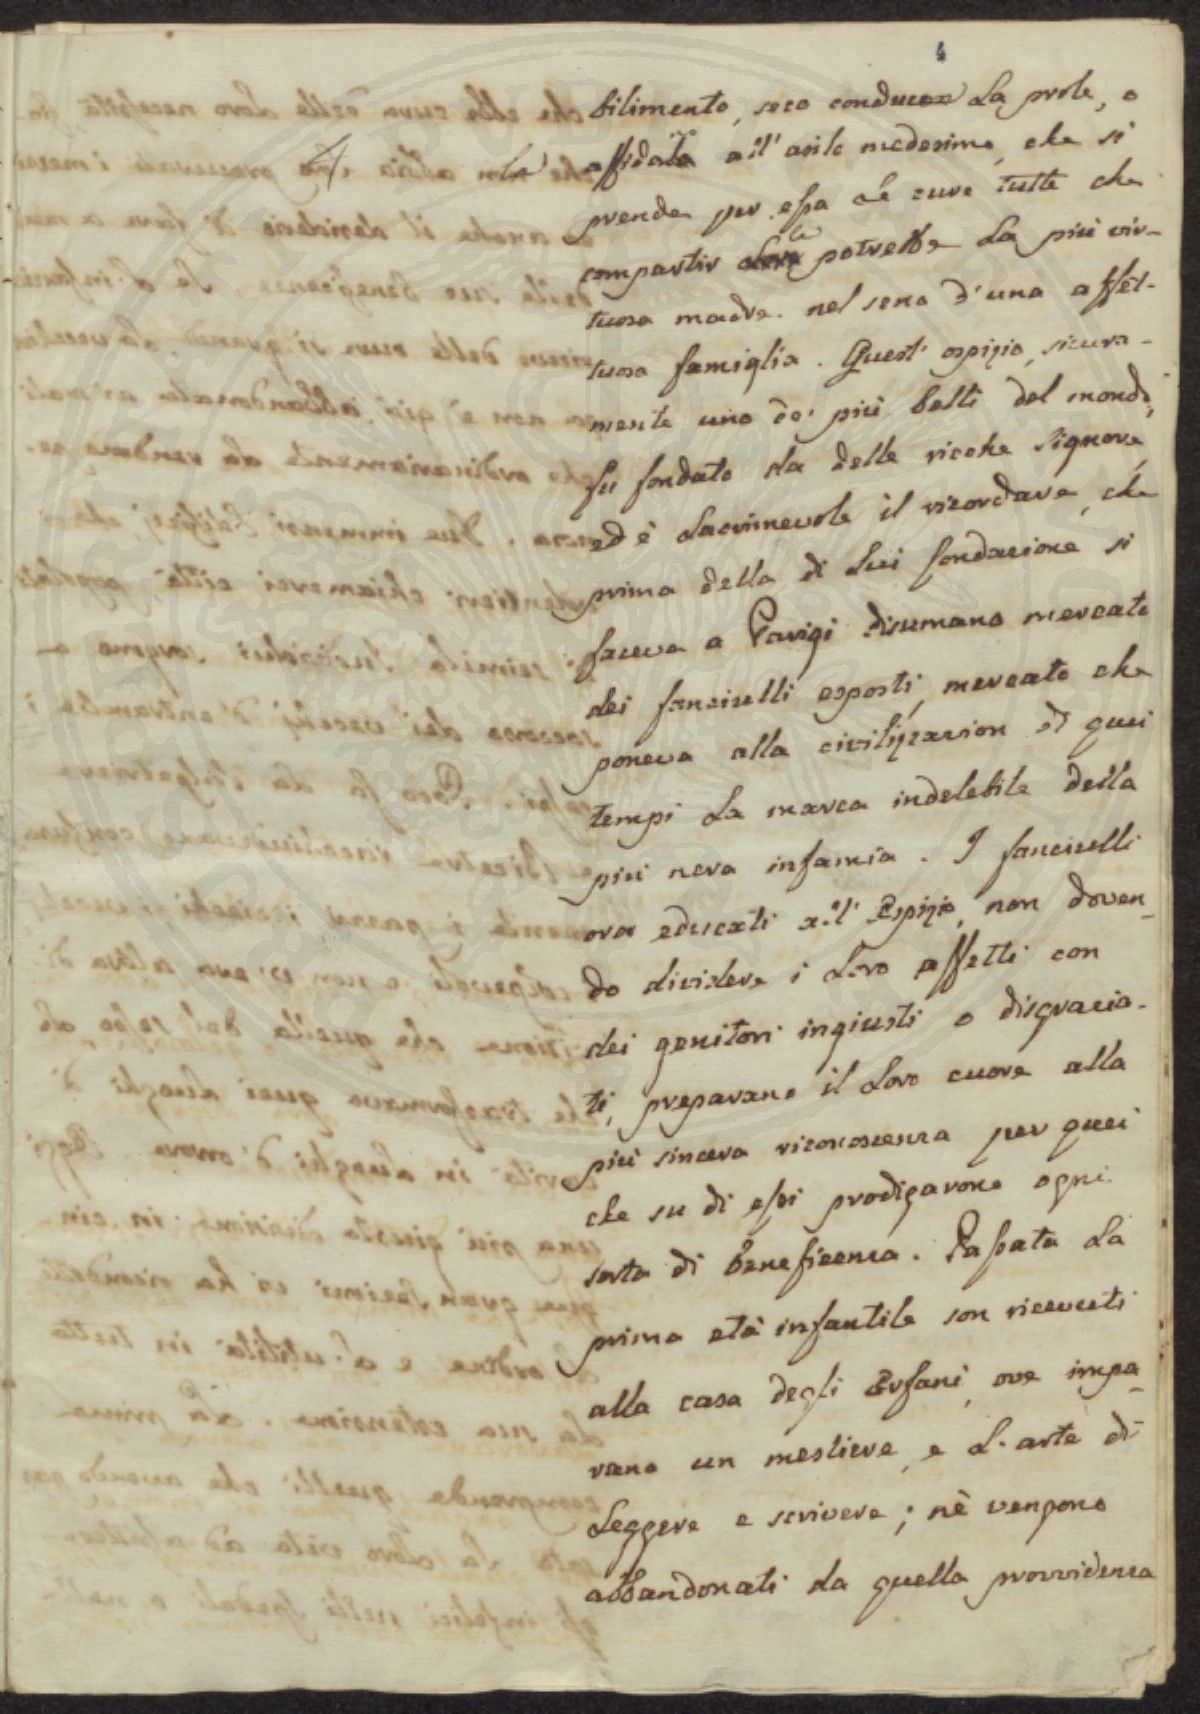 4
bilimento, seco conducon la prole, o
la affidarla all' asilo medesimo, che si
prende per essa le cure tutte che
compartir le potrebbe la più vir-
tuosa madre nel seno d'una affet-
tuosa famiglia. Quest' ospizio, sicura-
mente uno de' più belli del mondo,
fu fondato da delle ricche Signore,
ed è lacrimevole il ricordare, che
prima della di lui fondazione si
faceva a Parigi disumano mercato
dei fanciulli esposti, mercato che
poneva alla civilizzazion di quei
tempi la marca indelebile della
più nera infamia. I fanciulli
ora educati all' Ospizio, non doven-
do dividere i loro affetti con
dei genitori ingiusti o disgrazia-
ti, preparano il loro cuore alla
più sincera riconoscenza per quei
che su di essi prodigarono ogni
sorta di beneficenza. Passata la
prima età infantile son ricevuti
alla casa degli Orfani, ove impa-
rano un mestiere, e l'arte di
leggere e scrivere; nè vengono
abbandonati da quella provvidenza